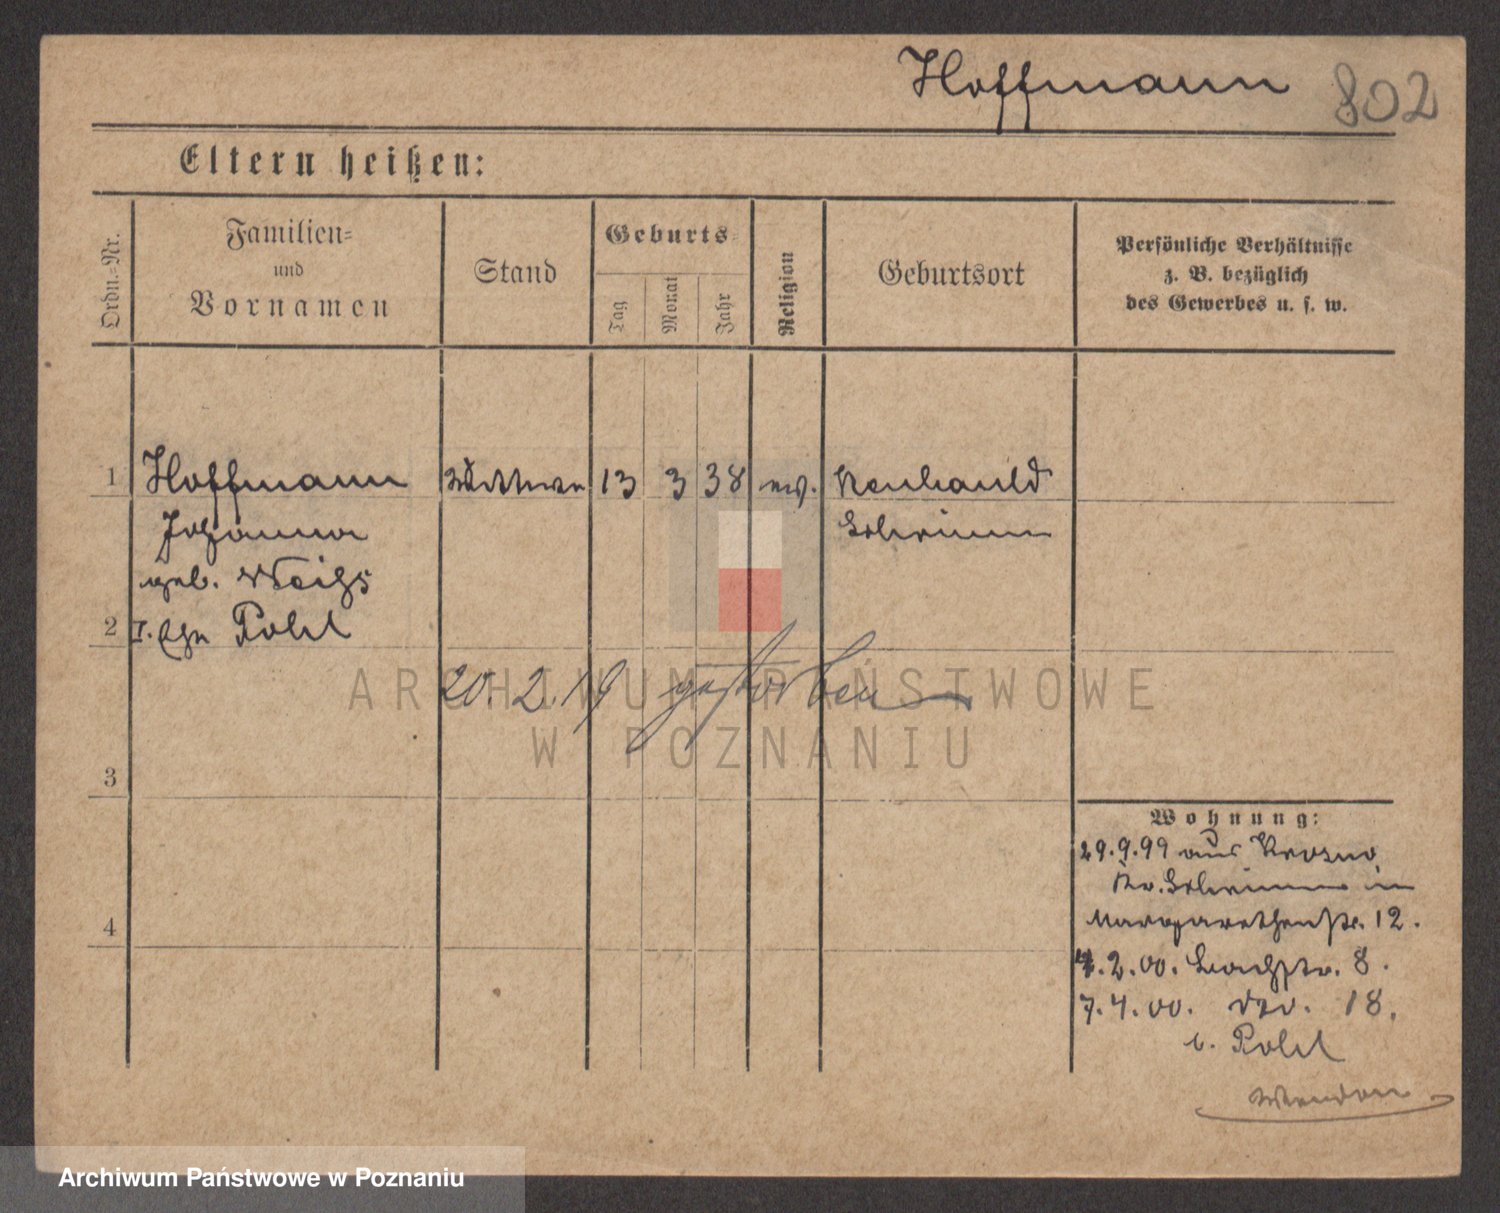 Hoffmann 802
Eltern heißen:
Ordn.-Nr.
Familien-
und
Vornamen
Stand
Geburts-
Tag
Monat
Jahr
Religion
Geburtsort
Persönliche Verhältnisse
z. B. bezüglich
des Gewerbes u. s. w.
1 Hoffmann Wittwe 13 3 38 ev.
Johanna Schrimm
geb. Weihs
2 I. Ehe Pohl
20.2.19 gestorben
3
4
Wohnung:
29.9.99 aus Krosno
Kr. Schrimm in
Margarethenstr. 12.
4.2.00. Bachstr. 8.
7.4.00. 18.
b. Pohl
ARCHIWUM PAŃSTWOWE
W POZNANIU
Archiwum Państwowe w Poznaniu